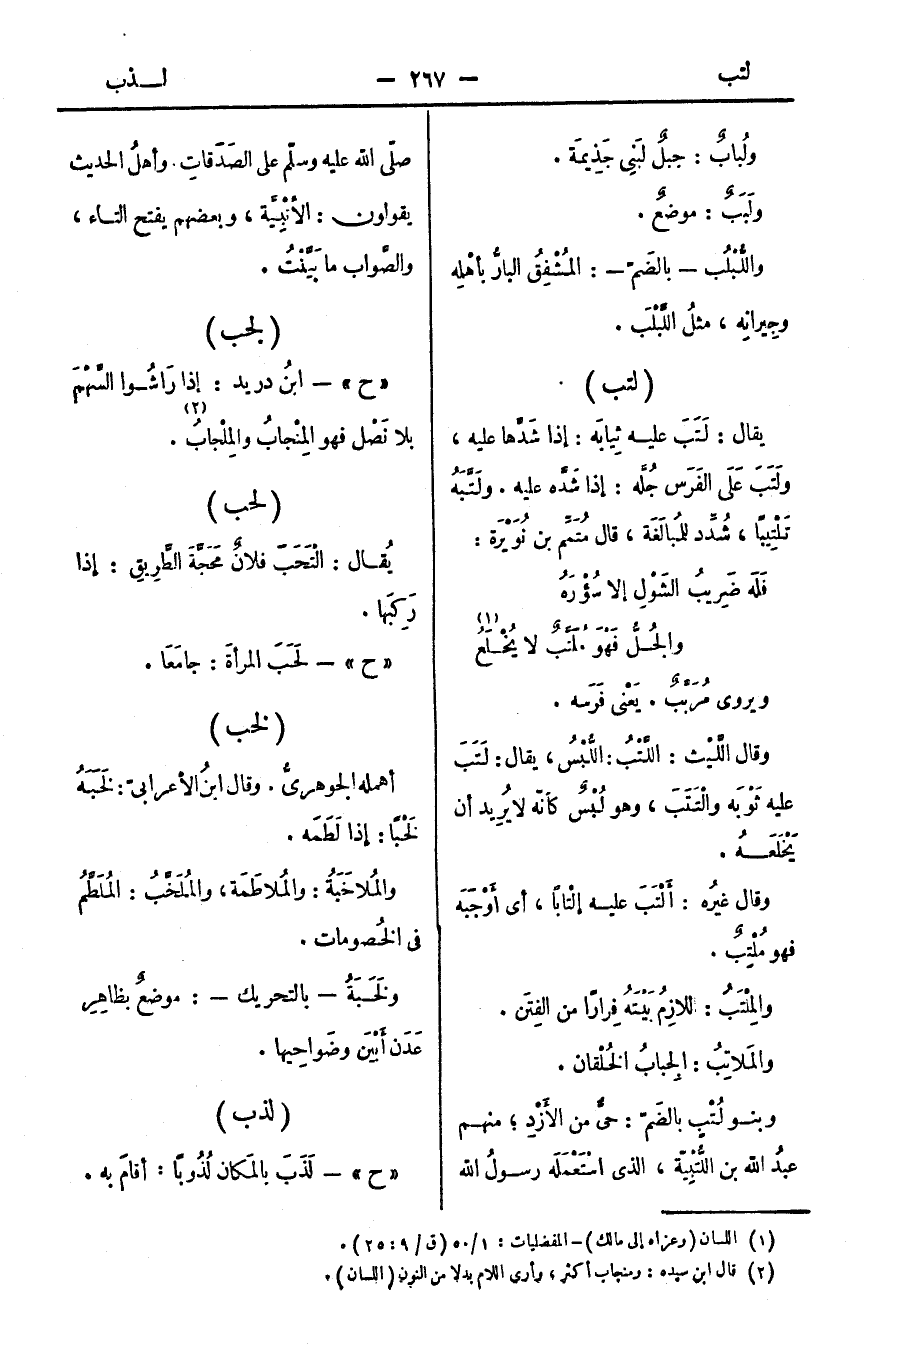 لتب
— ٢٦٧ —
لـــذب
ولُبابٌ : جبلٌ لبَنِى جَذِيمَة .
ولَبَبٌ : موضعٌ .
واللُّبْلُب — بالضمّ — : المُشْفِقُ البارُّ بأهْلِه
وجِيرانِه ، مثلُ اللَّبْلَب .
( لتب )
يقال : لَتَبَ عليـه ثِيابَه : إذا شَدَّها عليه ،
ولَتَبَ عَلَى الفَرَس جُلَّه : إذا شَدَّه عليه . ولَتَّبَهُ
تَلْتِيبًا ، شُدِّد للمُبالَغَة ، قال مُتَمِّم بن نُوَيْرَة :
فَلَه ضَرِيبُ الشَّوْلِ إلا سُؤْرَهُ
والجُـلُّ فَهْوَ مُلَتَّبٌ لا يُخْـلَعُ (١)
ويروى مُرَبَّبٌ . يَعْنِى فَرَسَه .
وقال اللَّيْث : اللَّتْبُ : اللُّبْسُ ، يقال : لَتَبَ
عليه ثَوْبَه والْتَتَبَ ، وهو لُبْسٌ كأنّه لا يُرِيد أن
يَخْلَعَــهُ .
وقال غيرُه : أَلْتَبَ عليـه إلْتابًا ، أى أَوْجَبَه
فهو مُلْتِبٌ .
والمِلْتَبُ : اللازِمُ بَيْتَهُ فِرارًا من الفِتَن .
والمَلاتِبُ : الجِبابُ الخُلْقان .
وبنـو لُتْبٍ بالضمّ : حىٌّ من الأَزْدِ ؛ منهـم
عبدُ الله بن اللُّتْبِيَّة ، الذى اسْتَعْمَلَه رسـولُ الله
صلّى الله عليه وسلّم على الصَدَقاتِ . وأهلُ الحديث
يقولون : الأُتْبِيَّة ، وبعضهم يفتح التـاء ،
والصَّواب ما بَيَّنْتُ .
( لجب )
« ح » — ابنُ دريد : إذا رَاشُـوا السَّهْمَ
بلا نَصْل فهو المِنْجابُ والمِلْجابُ (٢) .
( لحب )
يُقـال : الْتَحَبَ فلانٌ مَحَجَّةَ الطَّرِيقِ : إذا
رَكِبَها .
« ح » — لَحَبَ المرأةَ : جامَعَها .
( لخب )
أهمله الجوهرىُّ . وقال ابنُ الأعرابىّ : لَخَبَهُ
لَخْبًا : إذا لَطَمَه .
والمُلاخَبَةُ : والمُلاطَمَة ، والمُلَخَّبُ : المُلَطَّمُ
فى الخُصومات .
ولَخَبَةُ — بالتحريك — : موضعٌ بظاهِرِ
عَدَن أَبْيَن وضَواحِيها .
( لذب )
« ح » — لَذَبَ بالمَكان لُذُوبًا : أقامَ به .
(١) اللسان (وعزاه إلى مالك) – المفضليات : ١ / ٥٠ (ق / ٩ : ٢٥) .
(٢) قال ابن سيده : ومنجاب أكثر ، وأرى اللام بدلا من النون (اللسان) .